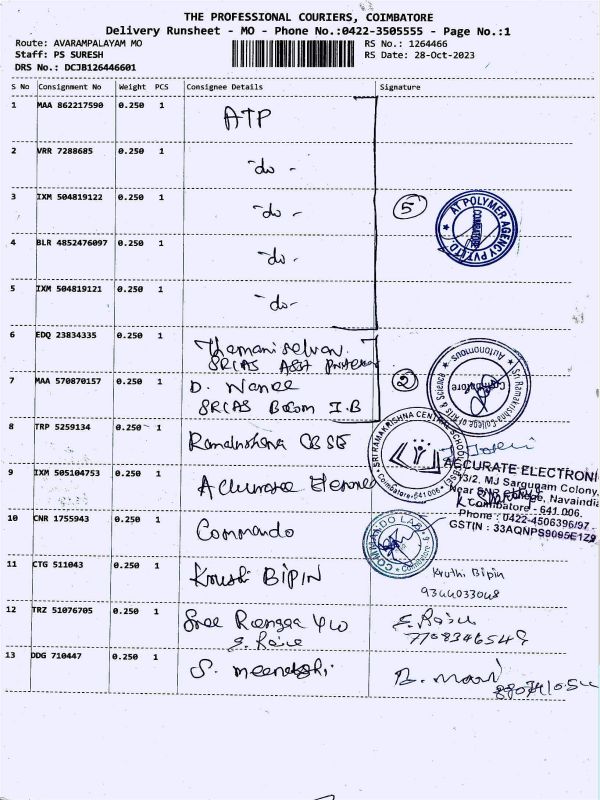 THE PROFESSIONAL COURIERS, COIMBATORE
Delivery Runsheet - MO - Phone No.:0422-3505555 - Page No.:1
Route: AVARAMPALAYAM MO
RS No.: 1264466
Staff: PS SURESH
RS Date: 28-Oct-2023
DRS No.: DCJB126446601
S No Consignment No Weight PCS Consignee Details Signature
1 MAA 862217590 0.250 1 ATP
2 VRR 7288685 0.250 1 -do-
3 IXM 504819122 0.250 1 -do-
5
AT POLYMER AGENCY PVT LTD.
COIMBATORE
4 BLR 4852476097 0.250 1 -do-
5 IXM 504819121 0.250 1 -do-
6 EDQ 23834335 0.250 1 Thamariselvan
SRCAS Asst
Sri Ramakrishna College of Arts & Science
Autonomous
Coimbatore
7 MAA 570870157 0.250 1 D.
2
SRCAS Bcom I.B
8 TRP 5259134 0.250 1 Ramakrishna CBSE
SRI RAMAKRISHNA CENTRAL SCHOOL
Coimbatore-641 006
9 IXM 505104753 0.250 1 Accurate
ACCURATE ELECTRONI
73/2, MJ Sargunam Colony,
Near SNR College, Navaindia
Coimbatore - 641 006.
Phone : 0422-4506396/97
GSTIN : 33AQNPS9095E1Z9
10 CNR 1755943 0.250 1 Commando
COMMANDO LAB
Coimbatore
11 CTG 511043 0.250 1 Kruthi BIPIN
Kruthi Bipin
9344033048
12 TRZ 51076705 0.250 1 Sree Rangaa
E. Raju
E. Raju
7708346549
13 DDG 710447 0.250 1 S. meenakshi
B. Mani